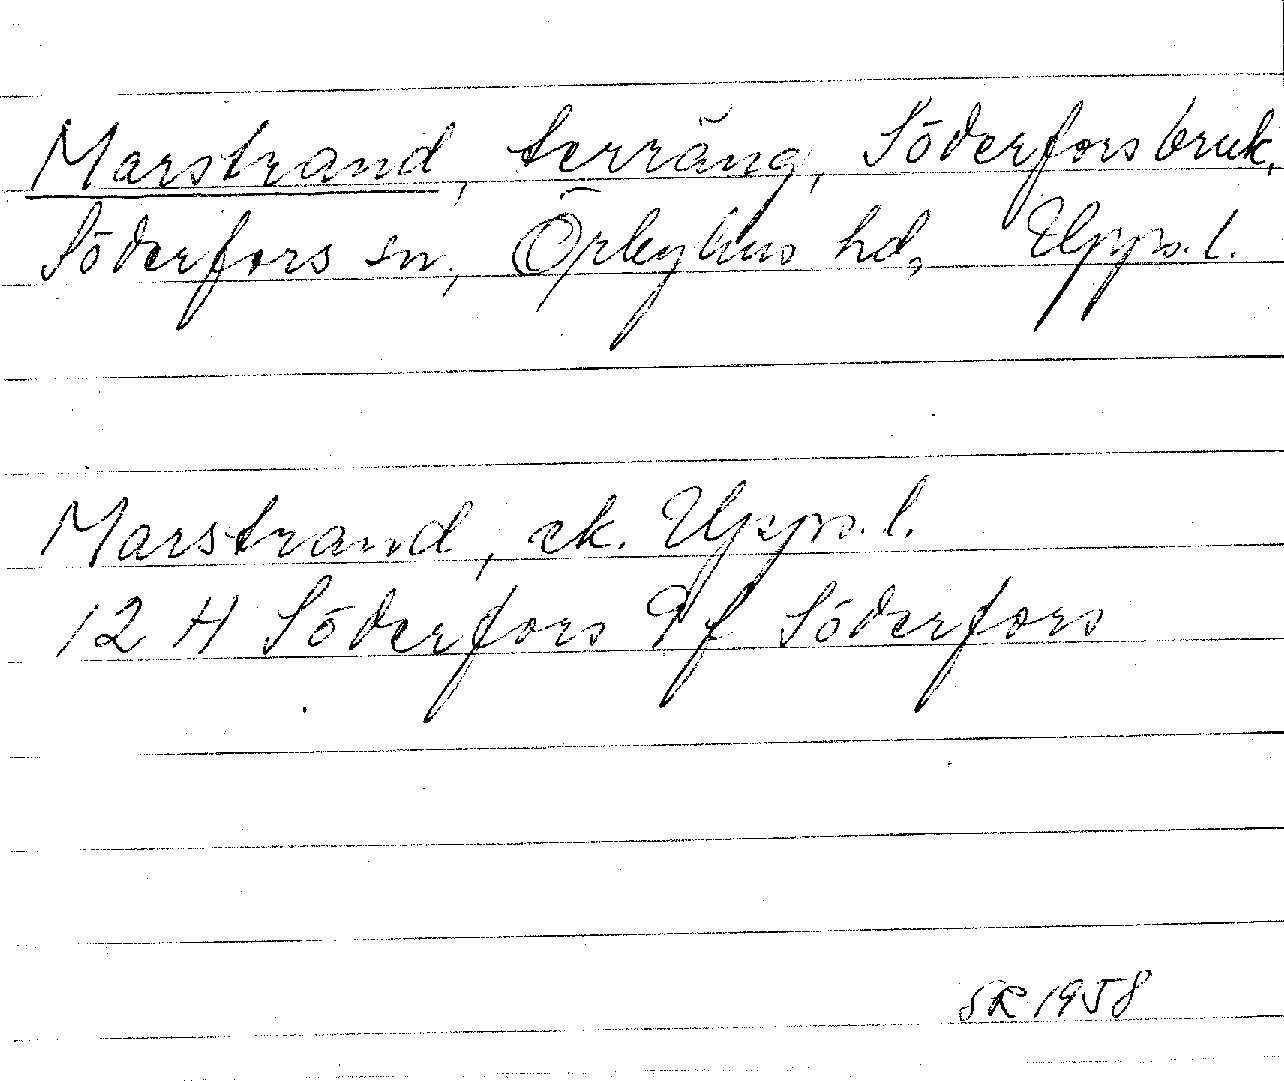 Marstrand, terräng, Söderforsbruk,
Söderfors sn, Örbyhus hd, Upps. l.
Marstrand, ek. Upps. l.
12 H Söderfors 9f Söderfors
SR 1958